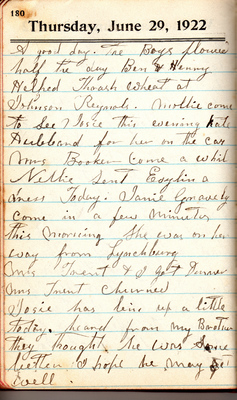 180
Thursday, June 29, 1922
A good day. The Boys plowed
half the day Ben & Henny
Helped Thrash wheat at
Johnson Reynols. Mollie come
to See Josie this evening Kate
Hubbland for her on the car
Mrs Booker come a whil
Nellie Sent Evylin a
dress Today. Janie Gravely
come in a few minutes
this morning She was on her
way from Lynchburg
Mrs Trent & I got Dinner
Mrs Trent churned
Josie has bin up a little
today. heard from my Brother
they thought he was Some
better I hope he may
well.